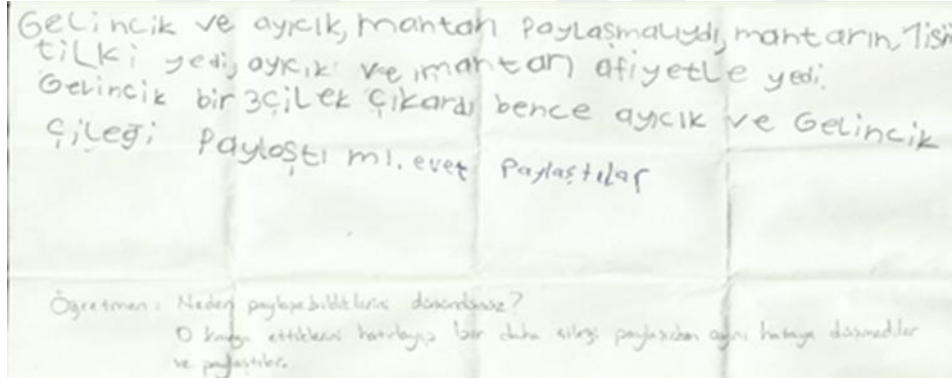 Gelincik ve ayıcık, mantarı paylaşmalıydı, mantarın, 1ısır
tilki yedi, ayıcık ve mantarı afiyetle yedi.
Gelincik bir 3çilek çıkardı bence ayıcık ve Gelincik
çileği Paylaştı mı. evet paylaştılar
Öğretmen: Neden paylaşabildiklerini düşündünüz?
O kavga ettiklerini hatırlayıp bir daha çileği paylaşırken aynı hataya düşmediler
ve paylaştılar.